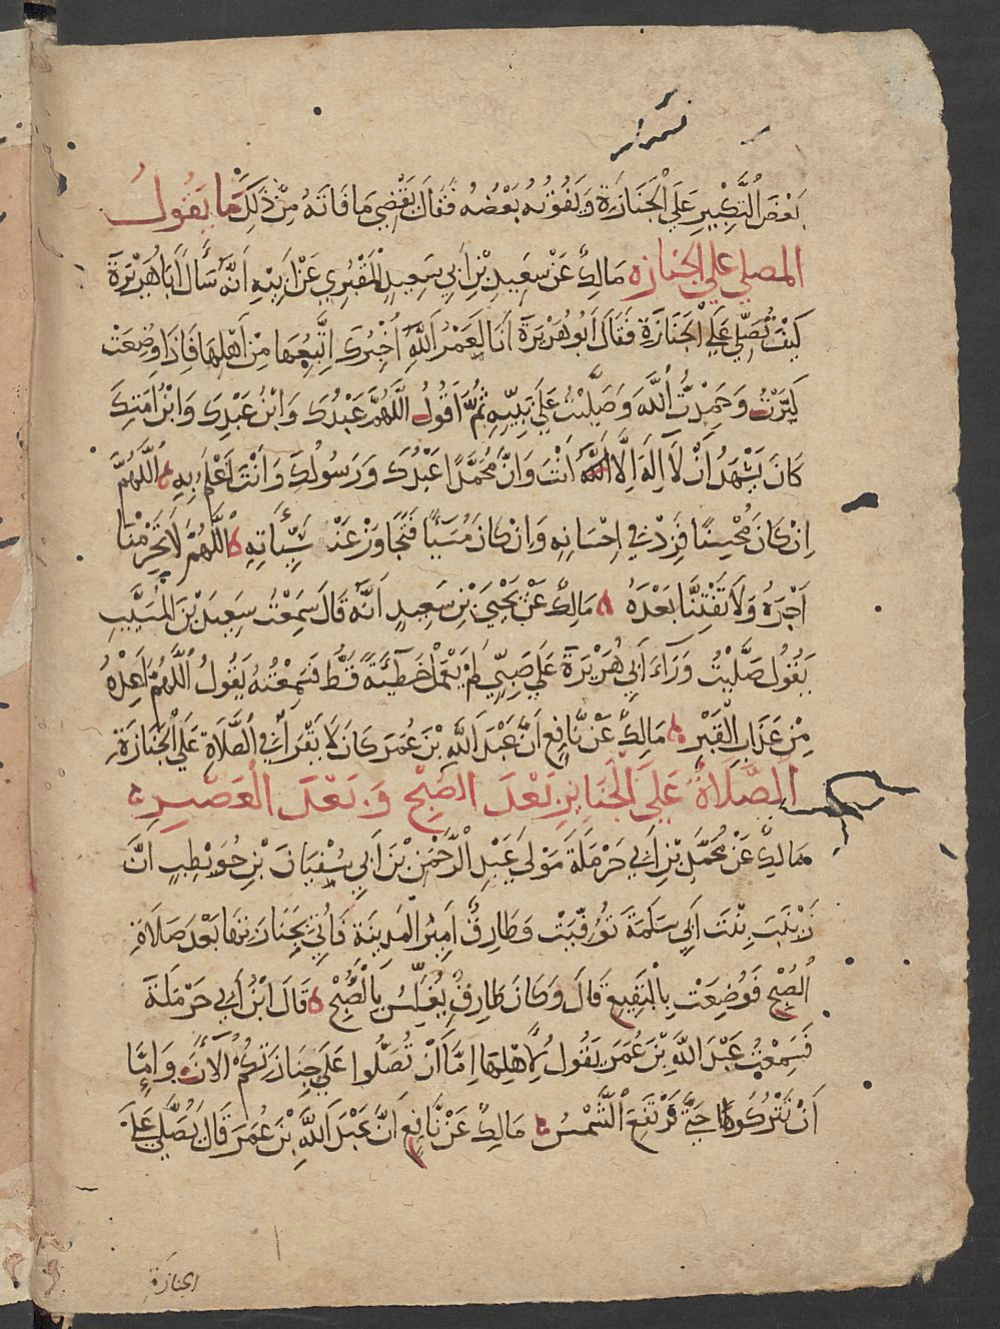 بَعْضَ التَّكْبِيرِ عَلَى الْجَنَازَةِ وَيَفُوتُهُ بَعْضُهُ فَقَالَ يَقْضِي مَا فَاتَهُ مِنْ ذَلِكَ مَا يَقُولُ
المصلي علي الجنازه مَالِكٌ عَنْ سَعِيدِ بْنِ أَبِي سَعِيدٍ الْمَقْبُرِي عَنْ أَبِيهِ أَنَّهُ سَأَلَ أَبَا هُرَيْرَةَ
كَيْفَ تُصَلِّي عَلَي الْجَنَازَةِ فَقَالَ أَبُو هُرَيْرَةَ أَنَا لَعَمْرُ اللَّهِ أُخْبِرُكَ اتَّبِعُهَا مِنْ أَهْلِهَا فَإِذَا وُضِعَتْ
كَبَّرْتُ وَحَمِدْتُ اللَّهَ وَصَلَّيْتُ عَلَى نَبِيِّهِ ثُمَّ أَقُولُ اللَّهُمَّ عَبْدُكَ وَابْنُ عَبْدِكَ وَابْنُ أَمَتِكَ
كَانَ يَشْهَدُ أَنْ لَا إِلَهَ إِلَّا أَنْتَ وَأَنَّ مُحَمَّدًا عَبْدُكَ وَرَسُولُكَ وَأَنْتَ أَعْلَمُ بِهِ اللَّهُمَّ
اِنْ كَانَ مُحْسِنًا فَزِدْ فِي اِحْسَانِهِ وَاِنْ كَانَ مُسِيئًا فَتَجَاوَزْ عَنْ سَيِّئَاتِهِ اللَّهُمَّ لَا تَحْرِمْنَا
أَجْرَهُ وَلَا تَفْتِنَّا بَعْدَهُ مَالِكٌ عَنْ يَحْيَى بْنِ سَعِيدٍ أَنَّهُ قَالَ سَمِعْتُ سَعِيدَ بْنَ الْمُسَيَّبِ
يَقُولُ صَلَّيْتُ وَرَاءَ أَبِي هُرَيْرَةَ عَلَى صَبِيٍّ لَمْ يَعْمَلْ خَطِيئَةً قَطُّ فَسَمِعْتُهُ يَقُولُ اللَّهُمَّ أَعِذْهُ
مِنْ عَذَابِ الْقَبْرِ مَالِكٌ عَنْ نَافِعٍ أَنَّ عَبْدَ اللَّهِ بْنَ عُمَرَ كَانَ لَا يَقْرَأُ فِي الصَّلَاةِ عَلَي الْجَنَازَةِ
الصَّلَاةُ عَلَى الْجَنَايِزِ بَعْدَ الصُّبْحِ وَ بَعْدَ الْعَصْرِ
مَالِكٌ عَنْ مُحَمَّدِ بْنِ أَبِي حَرْمَلَةَ مَوْلَى عَبْدِ الرَّحْمَنِ بْنِ أَبِي سُفْيَانَ بْنِ حُوَيْطِبٍ أَنَّ
زَيْنَبَ بِنْتَ أَبِي سَلَمَةَ تُوُفِّيَتْ وَطَارِقٌ أَمِيرُ الْمَدِينَةِ فَأُتِيَ بِجَنَازَتِهَا بَعْدَ صَلَاةِ
الصُّبْحِ فَوُضِعَتْ بِالْبَقِيعِ قَالَ وَكَانَ طَارِقٌ يُغَلِّسُ بِالصُّبْحِ قَالَ ابْنُ أَبِي حَرْمَلَةَ
فَسَمِعْتُ عَبْدَ اللَّهِ بْنَ عُمَرَ يَقُولُ لِأَهْلِهَا إِمَّا أَنْ تُصَلُّوا عَلَى جِنَازَتِكُمْ الْآنَ وَإِمَّا
أَنْ تَتْرُكُوهَا حَتَّى تَرْتَفِعَ الشَّمْسُ مَالِكٌ عَنْ نَافِعٍ أَنَّ عَبْدَ اللَّهِ بْنَ عُمَرَ قَالَ يُصَلَّى عَلَى
الجنازة